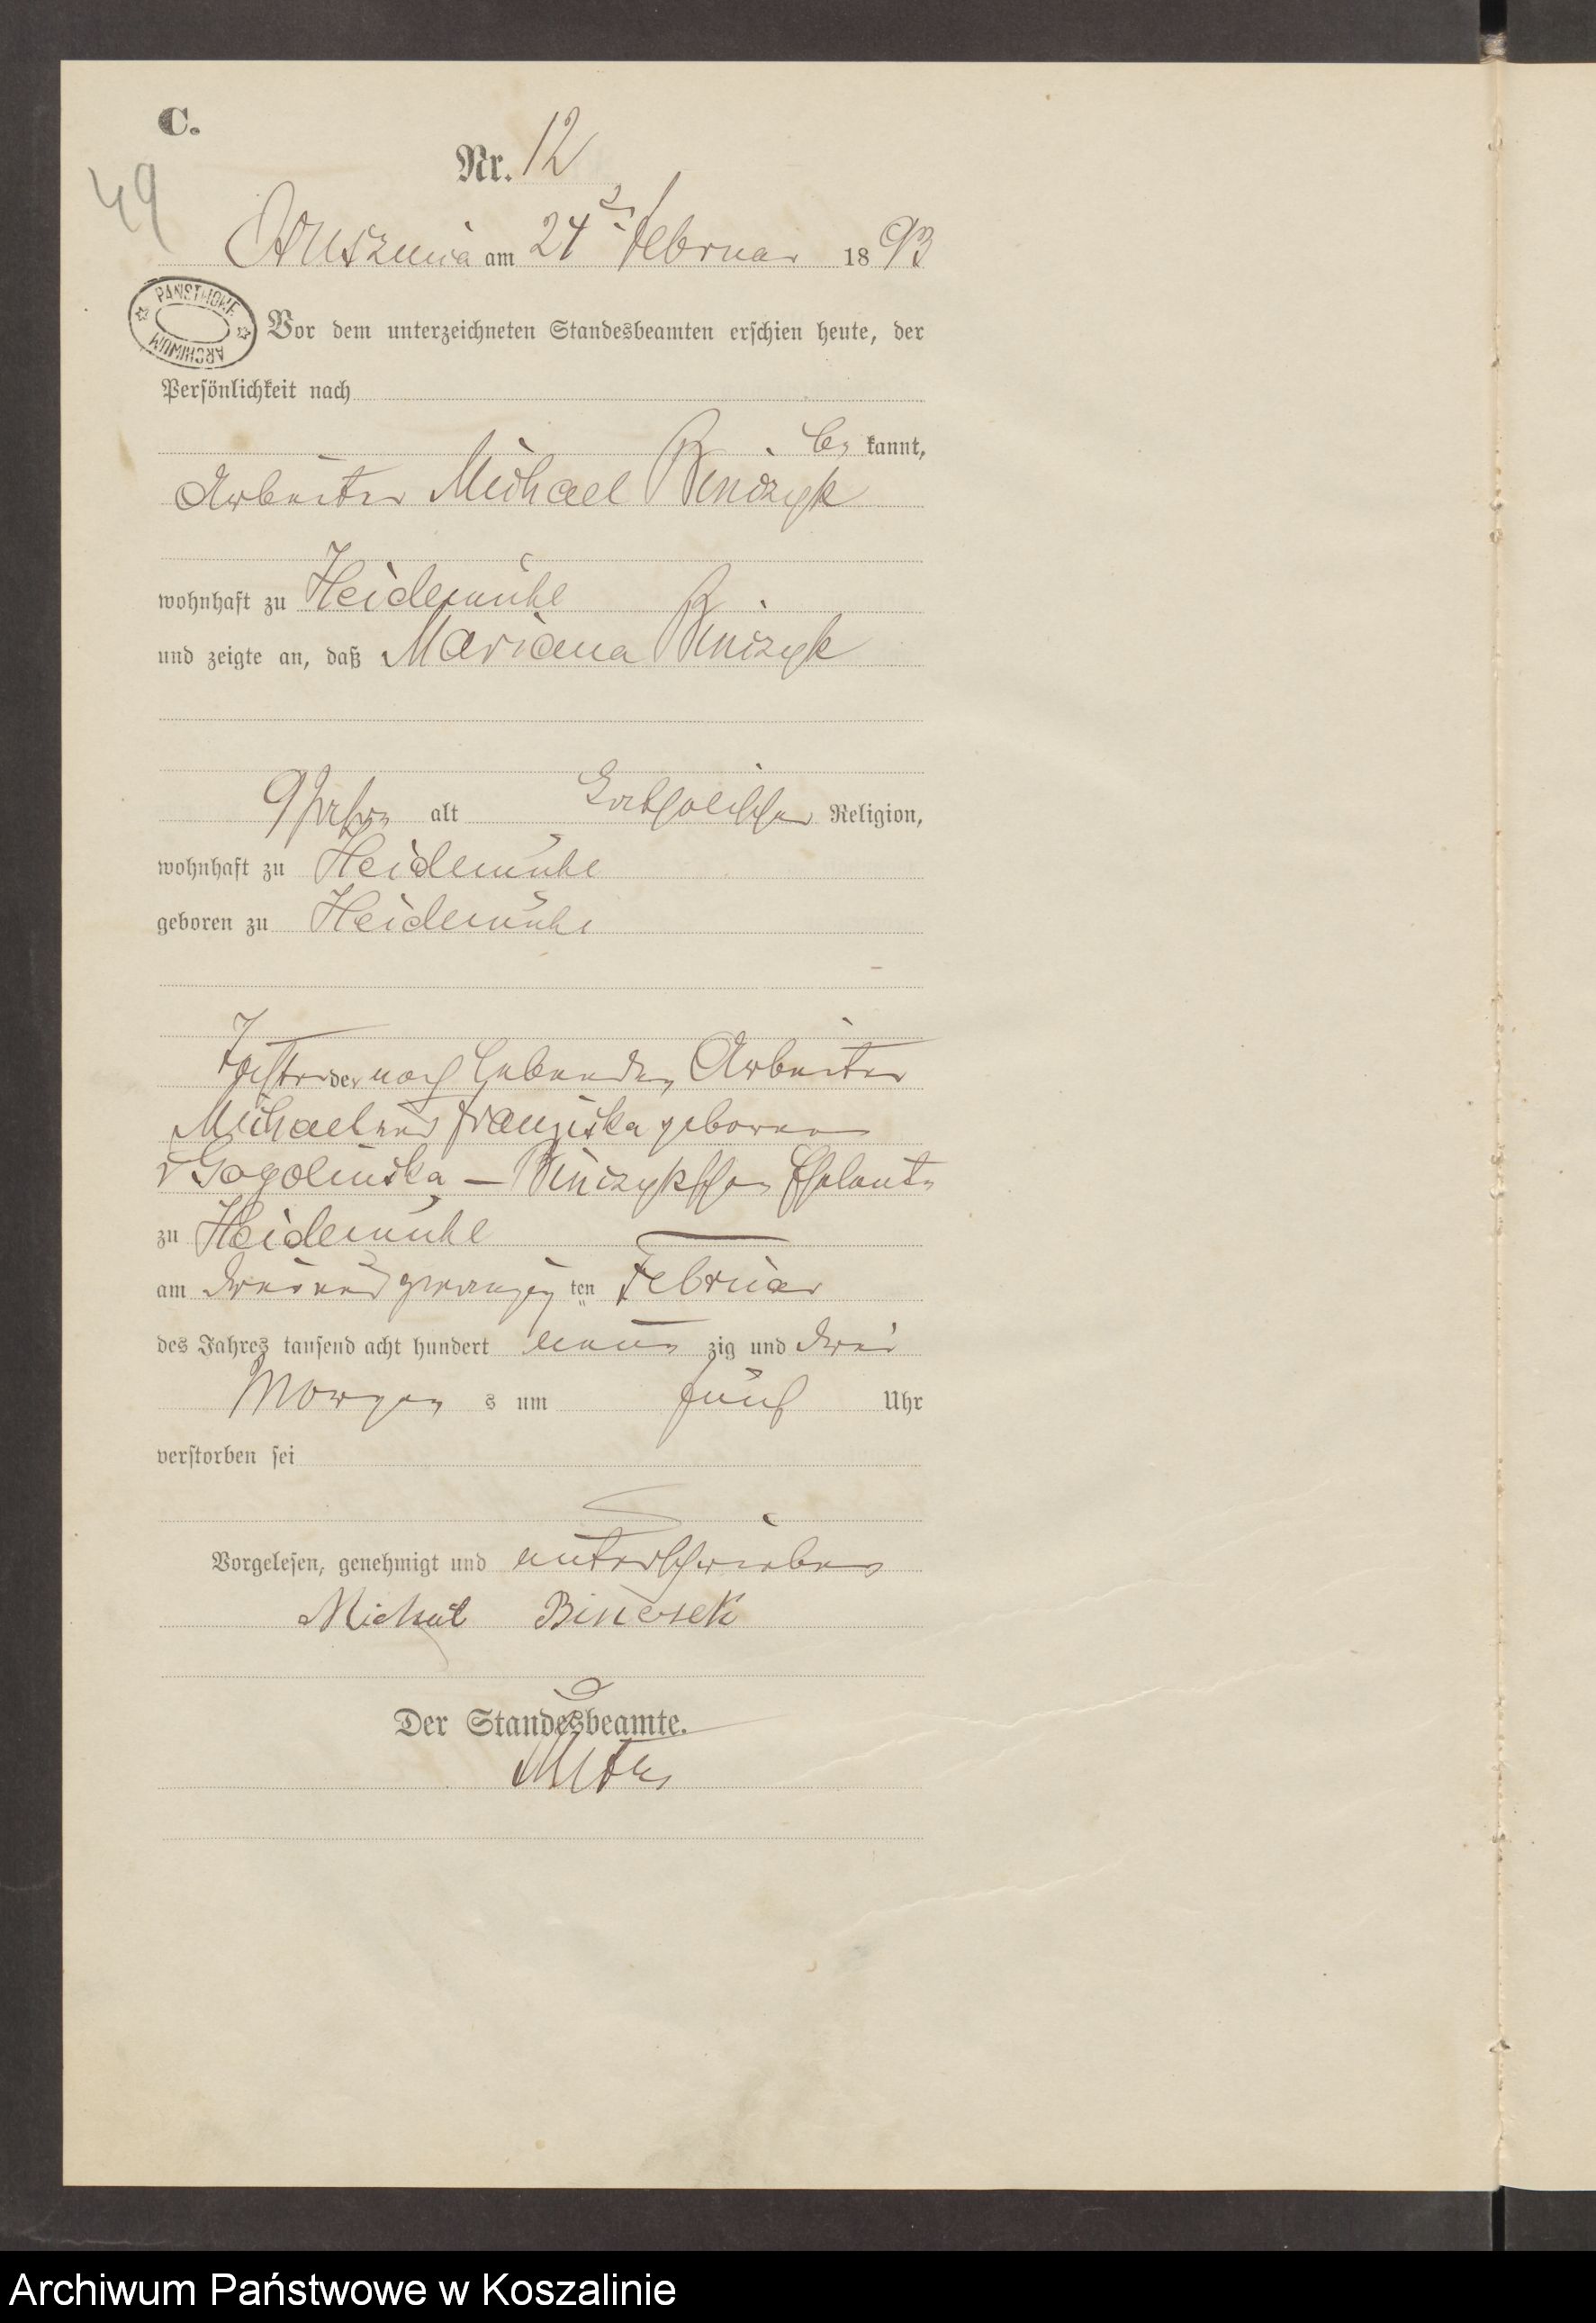 C.
Nr. 12
49
Bruszenia am 24ten Februar 1893
PAŃSTWOWE ARCHIWUM
Vor dem unterzeichneten Standesbeamten erschien heute, der
Persönlichkeit nach
be kannt,
Arbeiter Michael Binczyk
wohnhaft zu Heidemühl
und zeigte an, daß Mariana Binczyk
9 Jahre alt katholischer Religion,
wohnhaft zu Heidemühl
geboren zu Heidemühl
Tochter der noch lebenden Arbeiter
Michael und Franziska geborene
Gogolinska – Binczykschen Eheleute
zu Heidemühl
am dreiundzwanzig ten Februar
des Jahres tausend acht hundert neun zig und drei
Morgen s um fünf Uhr
verstorben sei
Vorgelesen, genehmigt und unterschrieben
Michał Binczek
Der Standesbeamte.
Archiwum Państwowe w Koszalinie